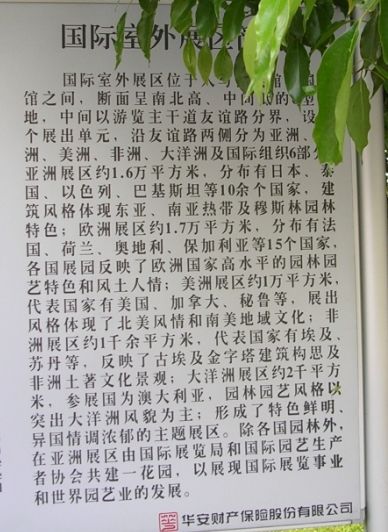 国际室外展区
国际室外展区位于人与
馆之间，断面呈南北高、中间
地，中间以游览主干道友谊路分界，设
个展出单元，沿友谊路两侧分为亚洲、
洲、美洲、非洲、大洋洲及国际组织6部
亚洲展区约1.6万平方米，分布有日本、泰
国、以色列、巴基斯坦等10余个国家，建
筑风格体现东亚、南亚热带及穆斯林园林
特色；欧洲展区约1.7万平方米，分布有法
国、荷兰、奥地利、保加利亚等15个国家，
各国展园反映了欧洲国家高水平的园林园
艺特色和风土人情；美洲展区约1万平方米，
代表国家有美国、加拿大、秘鲁等，展出
风格体现了北美风情和南美地域文化；非
洲展区约1千余平方米，代表国家有埃及、
苏丹等，反映了古埃及金字塔建筑构思及
非洲土著文化景观；大洋洲展区约2千平方
米，参展国为澳大利亚，园林园艺风格以
突出大洋洲风貌为主；形成了特色鲜明、
异国情调浓郁的主题展区。除各国园林外，
在亚洲展区由国际展览局和国际园艺生产
者协会共建一花园，以展现国际展览事业
和世界园艺业的发展。
华安财产保险股份有限公司